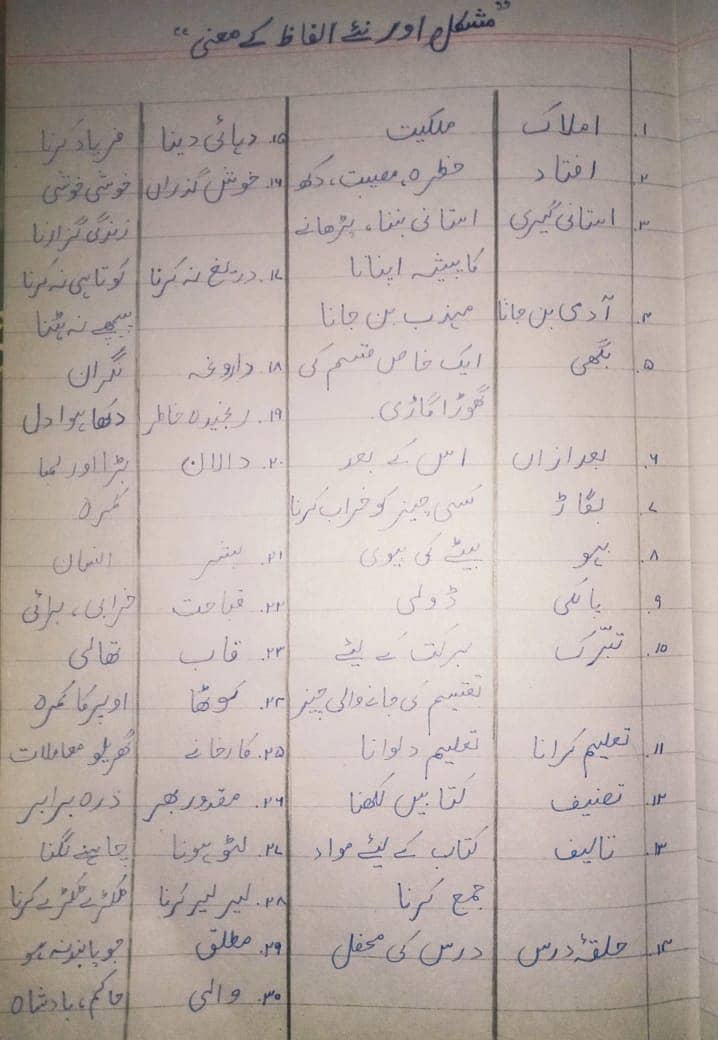 "مشکل اور نئے الفاظ کے معنی"
۱. املاک ملکیت
۲. افتاد خطرہ، مصیبت، دکھ
۳. استانی گیری استانی بننا، پڑھانے
کا پیشہ اپنانا
۴. آدمی بن جانا مہذب بن جانا
۵. بگھی ایک خاص قسم کی
گھوڑا گاڑی
۶. بعد ازاں اس کے بعد
۷. بگاڑ کسی چیز کو خراب کرنا
۸. بہو بیٹے کی بیوی
۹. پالکی ڈولی
۱۰. تبّرک برکت کے لیئے
تقسیم کی جانے والی چیز
۱۱. تعلیم کرانا تعلیم دلوانا
۱۲. تصنیف کتابیں لکھنا
۱۳. تالیف کتاب کے لیئے مواد
جمع کرنا
۱۴. حلقۂ درس درس کی محفل
۱۵. دہائی دینا فریاد کرنا
۱۶. خوش گذراں خوشی خوشی
زندگی گزارنا
۱۷. دریغ نہ کرنا کوتاہی نہ کرنا
پیچھے نہ ہٹنا
۱۸. داروغہ نگران
۱۹. رنجیدہ خاطر دکھا ہوا دل
۲۰. دالان بڑا اور لمبا
کمرہ
۲۱. بشر انسان
۲۲. قباحت خرابی، برائی
۲۳. قاب تھالی
۲۴. کوٹھا اوپر کا کمرہ
۲۵. کارخانے گھریلو معاملات
۲۶. مقدور بھر ذرہ برابر
۲۷. لٹو ہونا چاہنے لگنا
۲۸. لیر لیر کرنا ٹکڑے ٹکڑے کرنا
۲۹. مطلق جو پابند نہ ہو
۳۰. والی حاکم، بادشاہ